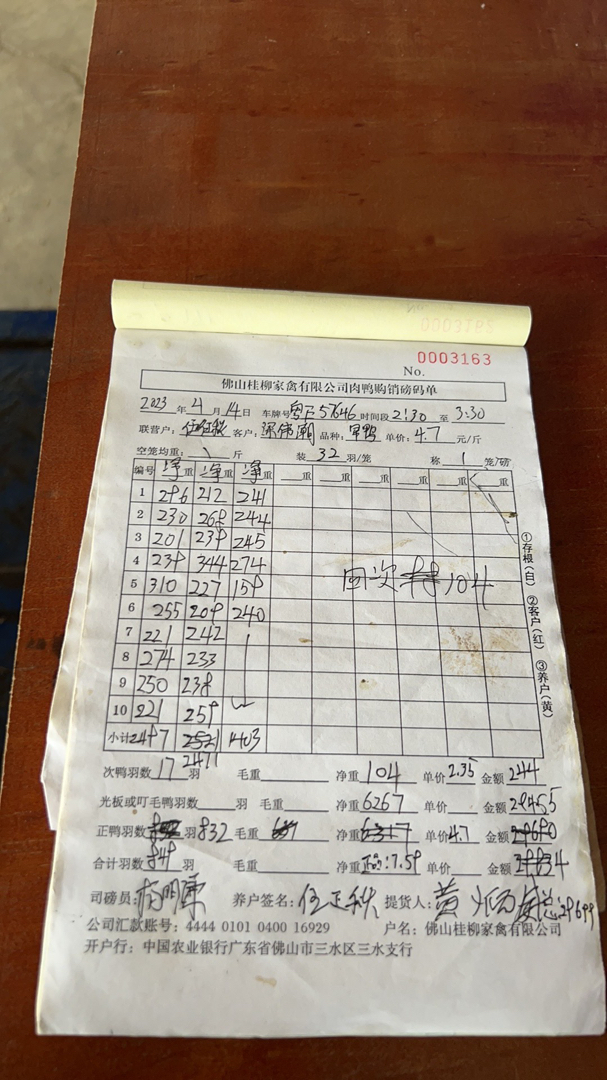 0003163
No.
佛山桂柳家禽有限公司肉鸭购销磅码单
2023 年 4 月 14 日 车牌号 粤F57646 时间段 2:30 至 3:30
联营户: 伍 客户: 梁伟潮 品种: 单价: 4.7 元/斤
空笼均重: 斤 装 32 羽/笼 称 1 笼/磅
编号 净重 净重 净重 重 重 重 重 重 重
1 286 212 241
2 230 268 244
3 201 238 245
4 238 344 274
5 310 227 158
6 255 208 240
7 221 242
8 274 233
9 250 238
10 221 258
小计 2487 2521 1403
2471
回次 104
次鸭羽数 17 羽 毛重 净重 104 单价 2.35 金额 244
光板或叮毛鸭羽数 羽 毛重 净重 6267 单价 金额 29455
正鸭羽数 832 羽 毛重 净重 6317 单价 4.7 金额
合计羽数 849 羽 毛重 净重 7.59 单价 金额
司磅员: 养户签名: 伍正秋 提货人: 黄 总29699
公司汇款账号: 4444 0101 0400 16929 户名: 佛山桂柳家禽有限公司
开户行: 中国农业银行广东省佛山市三水区三水支行
①存根(白) ②客户(红) ③养户(黄)